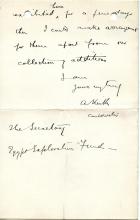 for a few days
then I could make arrangement
for them apart from our
collection of antiquities
I am
yours very truly
A. Keith
conservator
The Secretary
Egypt Exploration Fund